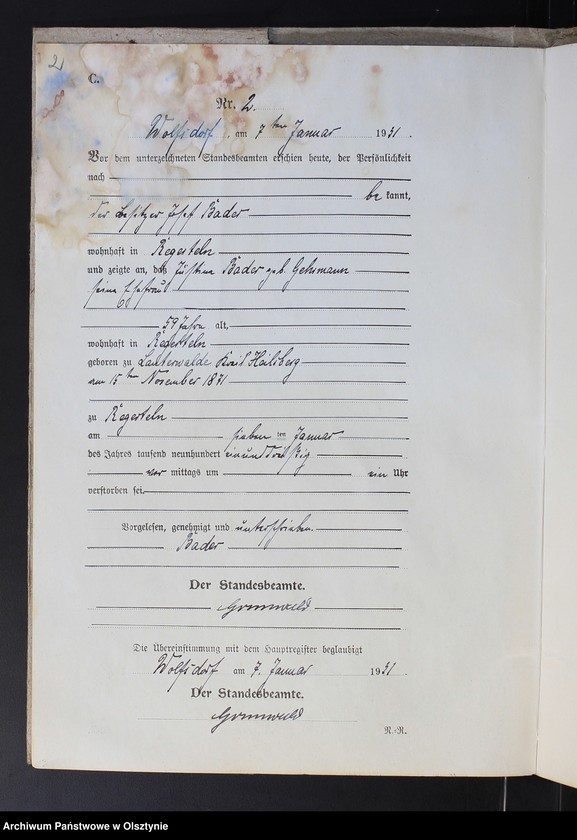 2
C.
Nr. 2.
Wolfsdorf, am 7ten Januar 1931.
Vor dem unterzeichneten Standesbeamten erschien heute, der Persönlichkeit
nach
be kannt,
der Besitzer Josef Bader
wohnhaft in Regerteln
und zeigte an, daß Justina Bader geb. Gehrmann
seine Ehefrau
59 Jahre alt,
wohnhaft in Regerteln
geboren zu Lauterwalde Kreis Heilsberg
am 15ten November 1871
zu Regerteln
am sieben ten Januar
des Jahres tausend neunhundert einunddreißig
vor mittags um ein Uhr
verstorben sei.
Vorgelesen, genehmigt und unterschrieben.
Bader
Der Standesbeamte.
Grunwald
Die Übereinstimmung mit dem Hauptregister beglaubigt
Wolfsdorf am 7. Januar 1931.
Der Standesbeamte.
Grunwald
N.-R.
Archiwum Państwowe w Olsztynie